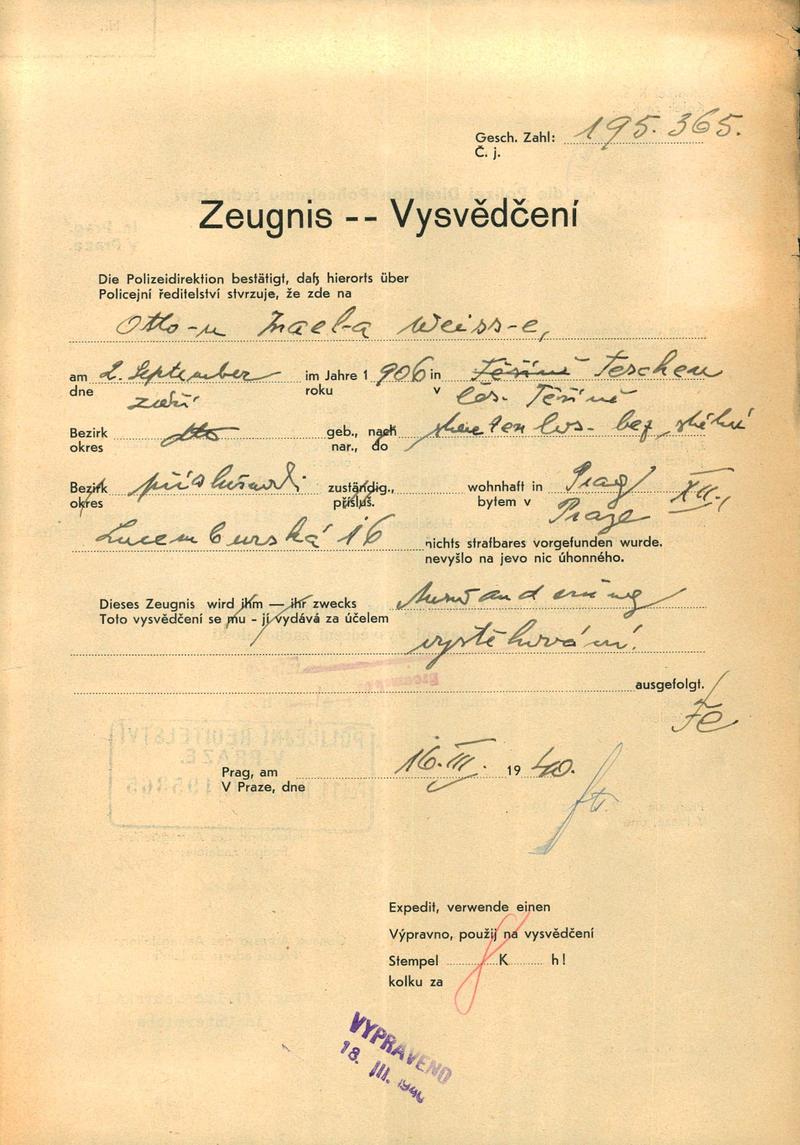 Gesch. Zahl: 195.365.
Č. j.
Zeugnis -- Vysvědčení
Die Polizeidirektion bestätigt, daß hierorts über
Policejní ředitelství stvrzuje, že zde na
Otto-u Israel-a Weiss-e,
am 2. September im Jahre 1 906 in Těšíně Teschen
dne září roku v čes. Těšíně
Bezirk dto geb., nach staatenlos - bez státní
okres nar., do
Bezirk příslušnosti zuständig., wohnhaft in Prag XII.,
okres přísluš. bytem v Praze
Lucemburská 16 nichts strafbares vorgefunden wurde.
nevyšlo na jevo nic úhonného.
Dieses Zeugnis wird ihm — ihr zwecks Auswanderung
Toto vysvědčení se mu - jí vydává za účelem
vystěhování.
ausgefolgt.
Fe
Prag, am 16. III. 19 40.
V Praze, dne
Expedit, verwende einen
Výpravno, použij na vysvědčení
Stempel K h!
kolku za
VYPRAVENO
18. III. 1940